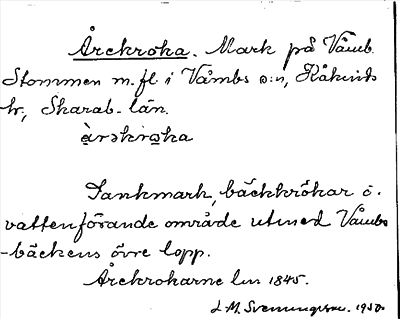 Årekroka. Mark på Våmb
Stommen m.fl i Våmbs s:n, Kåkinds
hr, Skarab. län.
àrəkrωka
Sankmark, bäckkrökar o.
vattenförande område utmed Våmbs
-bäckens övre lopp.
Årekrokarne lm 1845.
L.M. Svenungsson. 1930.